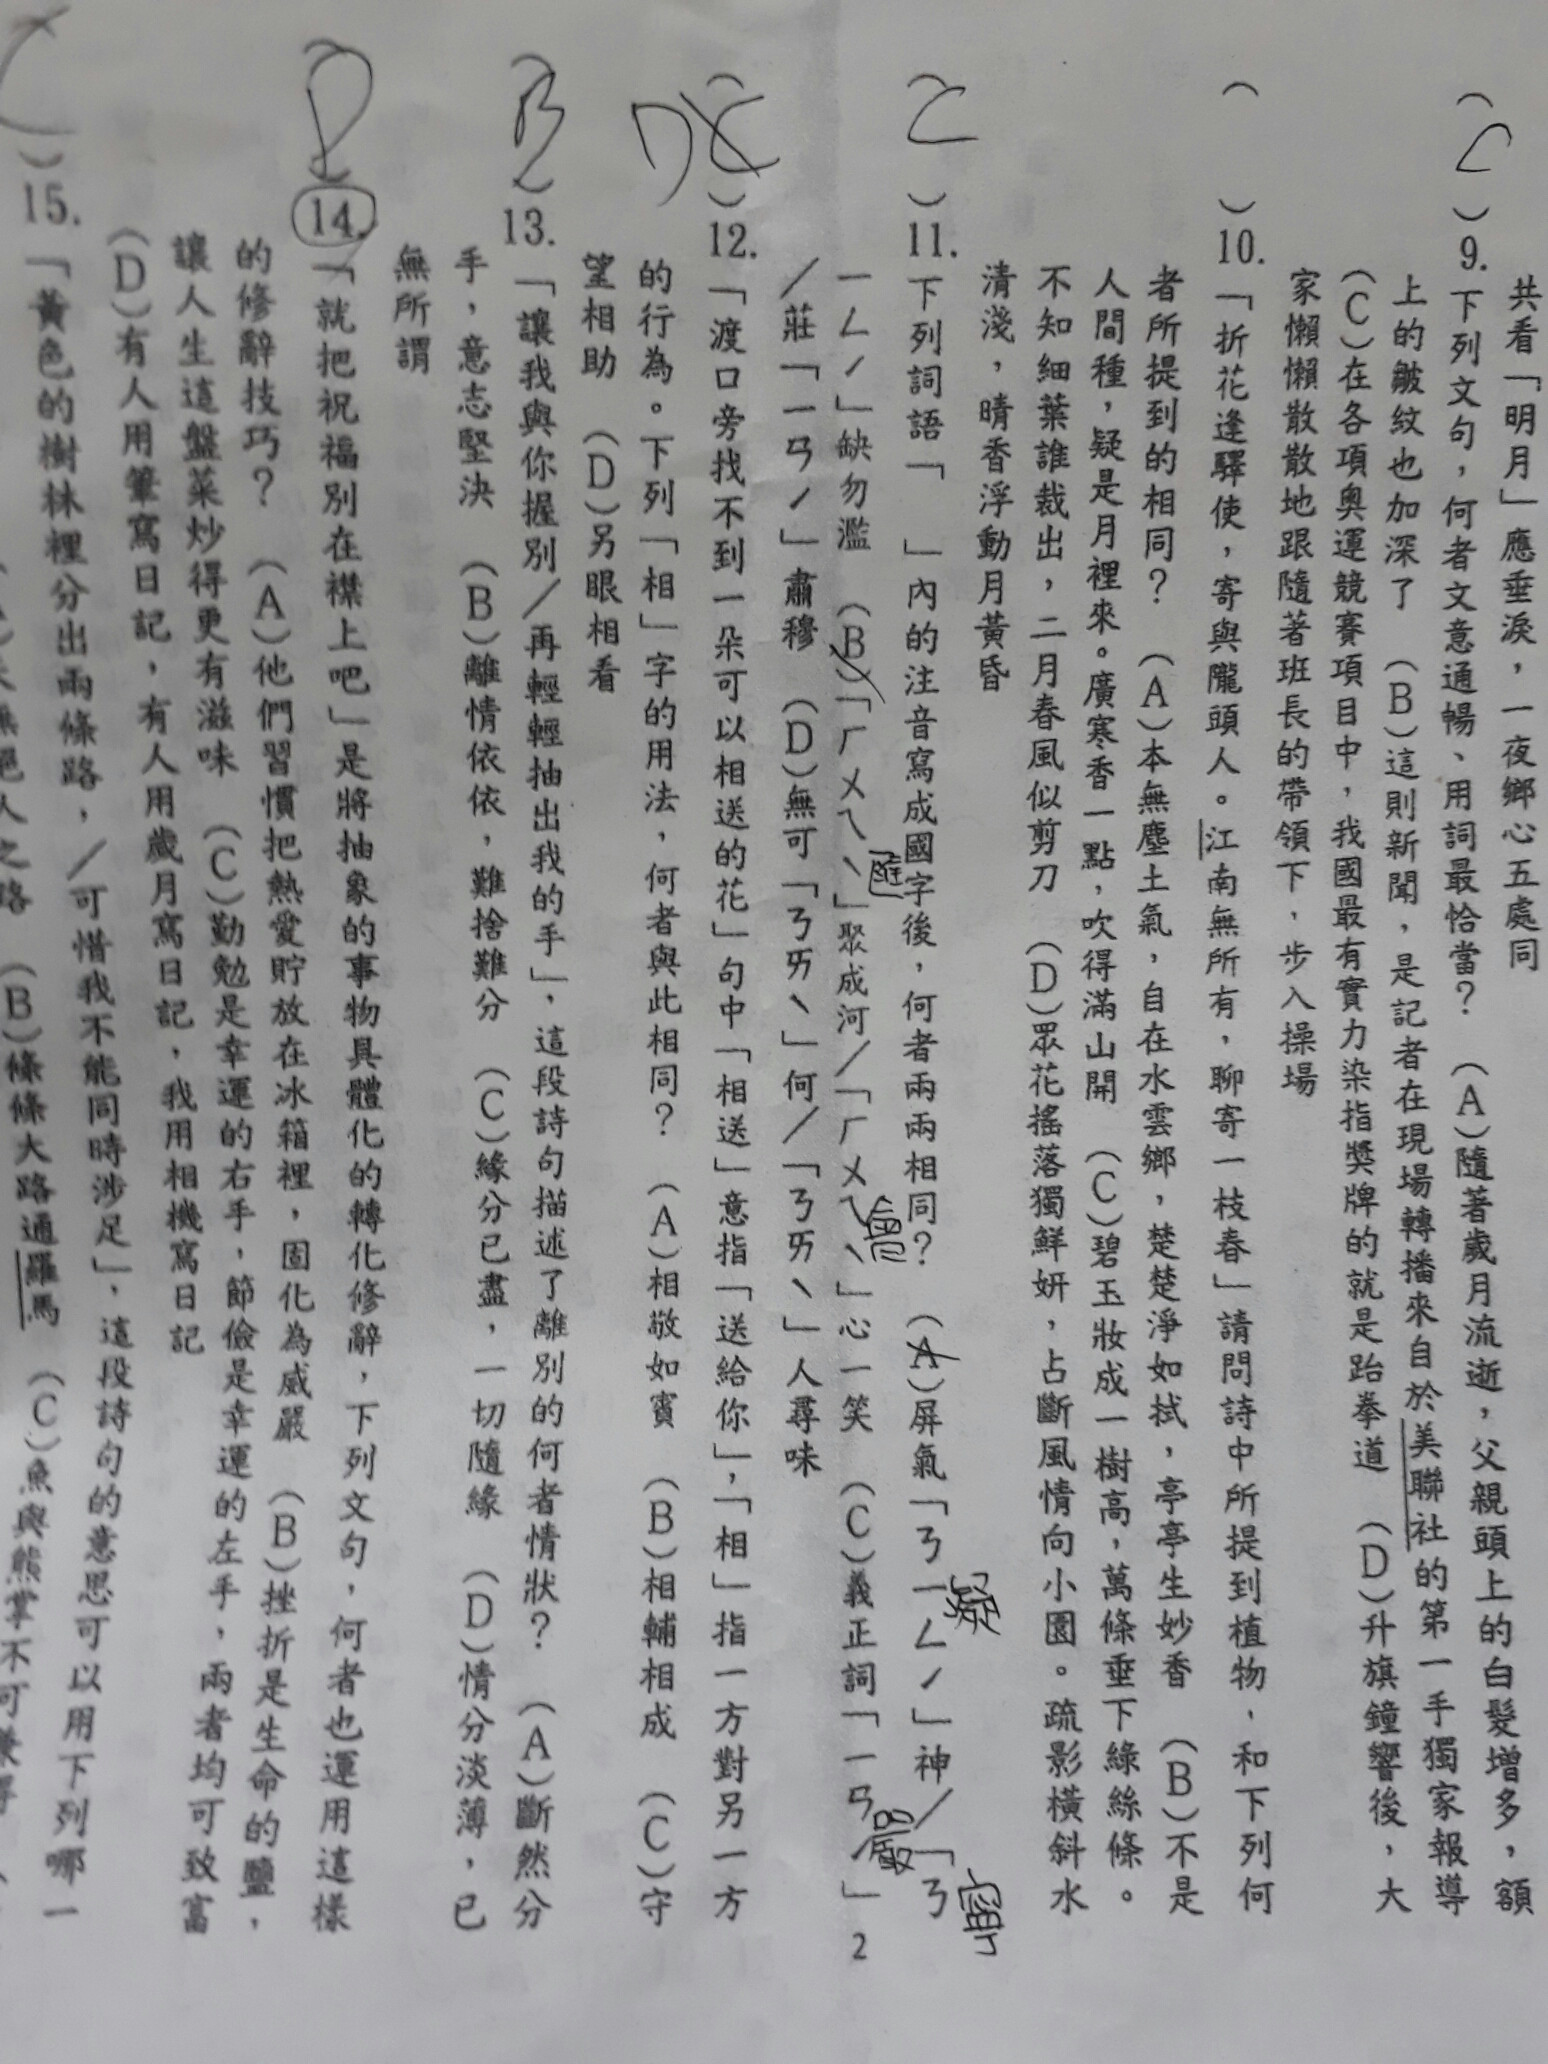 共看「明月」應垂淚，一夜鄉心五處同
（C）9.下列文句，何者文意通暢、用詞最恰當？　(A)隨著歲月流逝，父親頭上的白髮增多，額
上的皺紋也加深了　(B)這則新聞，是記者在現場轉播來自於美聯社的第一手獨家報導
(C)在各項奧運競賽項目中，我國最有實力染指獎牌的就是跆拳道　(D)升旗鐘響後，大
家懶懶散散地跟隨著班長的帶領下，步入操場
（　）10.「折花逢驛使，寄與隴頭人。江南無所有，聊寄一枝春」請問詩中所提到植物，和下列何
者所提到的相同？　(A)本無塵土氣，自在水雲鄉，楚楚淨如拭，亭亭生妙香　(B)不是
人間種，疑是月裡來。廣寒香一點，吹得滿山開　(C)碧玉妝成一樹高，萬條垂下綠絲條。
不知細葉誰裁出，二月春風似剪刀　(D)眾花搖落獨鮮妍，占斷風情向小園。疏影橫斜水
清淺，暗香浮動月黃昏
（C）11.下列詞語「　」內的注音寫成國字後，何者兩兩相同？　(A)屏氣「ㄋㄧㄥˊ」神／「ㄋ
凝 寧
ㄧㄥˊ」缺勿濫　(B)「ㄏㄨㄟˋ」聚成河／「ㄏㄨㄟˋ」心一笑　(C)義正詞「ㄧㄢˊ」
匯 會 嚴
／莊「ㄧㄢˊ」肅穆　(D)無可「ㄋㄞˋ」何／「ㄋㄞˋ」人尋味
D（C）12.「渡口旁找不到一朵可以相送的花」句中「相送」意指「送給你」，「相」指一方對另一方
的行為。下列「相」字的用法，何者與此相同？　(A)相敬如賓　(B)相輔相成　(C)守
望相助　(D)另眼相看
（B）13.「讓我與你握別／再輕輕抽出我的手」，這段詩句描述了離別的何者情狀？　(A)斷然分
手，意志堅決　(B)離情依依，難捨難分　(C)緣分已盡，一切隨緣　(D)情分淡薄，已
無所謂
14.「就把祝福別在襟上吧」是將抽象的事物具體化的轉化修辭，下列文句，何者也運用這樣
的修辭技巧？　(A)他們習慣把熱愛貯放在冰箱裡，固化為威嚴　(B)挫折是生命的鹽，
讓人生這盤菜炒得更有滋味　(C)勤勉是幸運的右手，節儉是幸運的左手，兩者均可致富
(D)有人用筆寫日記，有人用歲月寫日記，我用相機寫日記
（C）15.「黃色的樹林裡分出兩條路，／可惜我不能同時涉足」，這段詩句的意思可以用下列哪一
人之路　(B)條條大路通羅馬　(C)魚與熊掌不可兼得
2